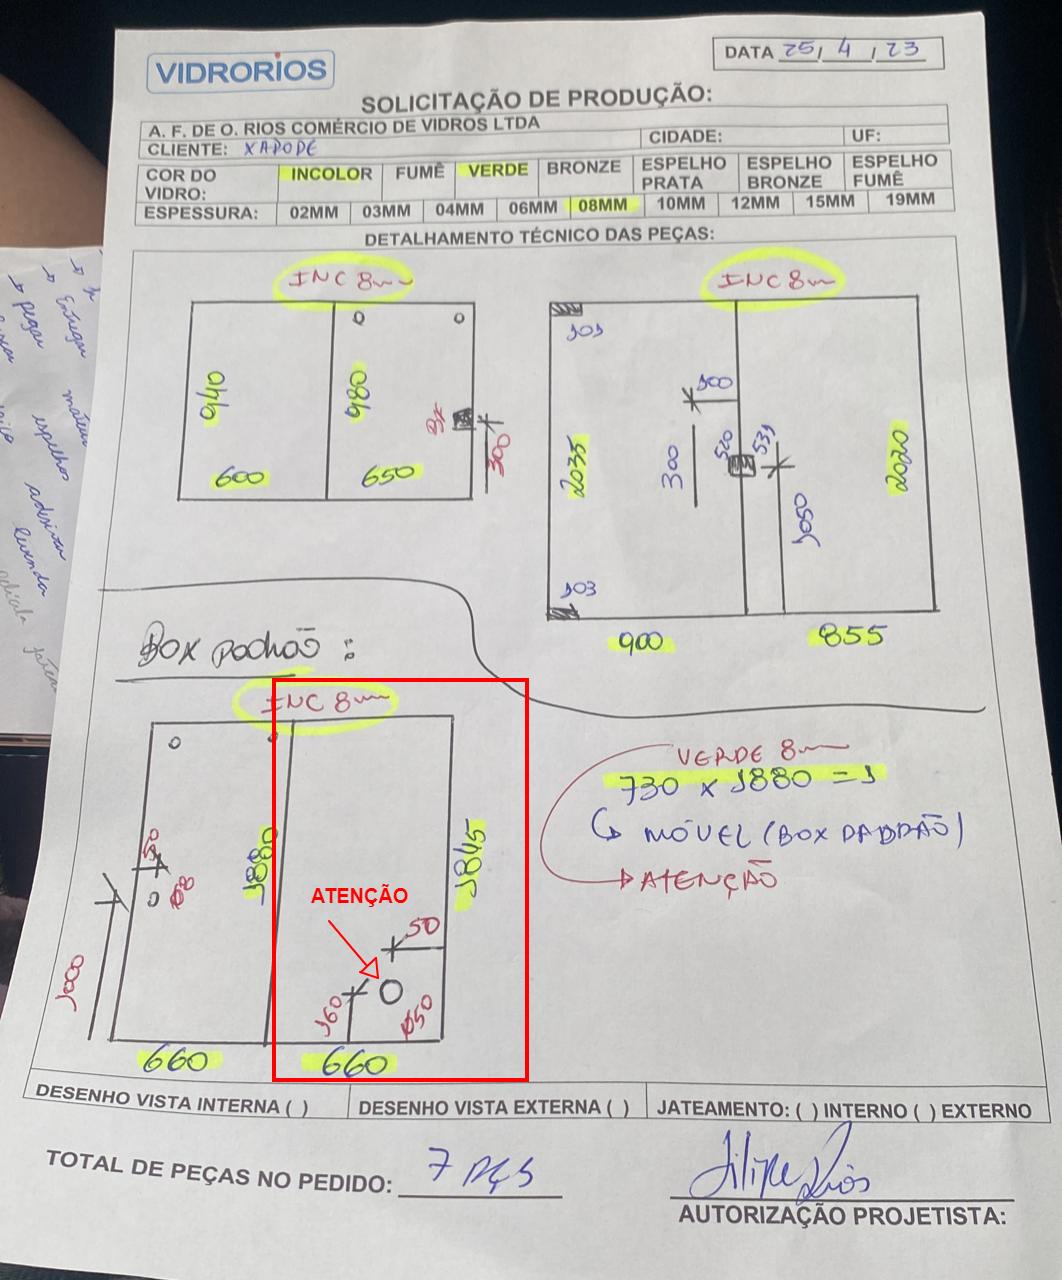 VIDRORIOS
DATA 25/4/23
SOLICITAÇÃO DE PRODUÇÃO:
A. F. DE O. RIOS COMÉRCIO DE VIDROS LTDA
CLIENTE: XAPOPE CIDADE: UF:
COR DO VIDRO: INCOLOR FUMÊ VERDE BRONZE ESPELHO PRATA ESPELHO BRONZE ESPELHO FUMÊ
ESPESSURA: 02MM 03MM 04MM 06MM 08MM 10MM 12MM 15MM 19MM
DETALHAMENTO TÉCNICO DAS PEÇAS:
INC 8mm
940
980
600
650
300
INC 8mm
101
100
300
520
531
1050
2035
2020
103
900
855
BOX PADRÃO:
INC 8mm
50
Ø8
1000
1880
1845
ATENÇÃO
50
160
Ø50
660
660
VERDE 8mm
730 x 1880 = 1
MÓVEL (BOX PADRÃO)
ATENÇÃO
DESENHO VISTA INTERNA ( ) DESENHO VISTA EXTERNA ( ) JATEAMENTO: ( ) INTERNO ( ) EXTERNO
TOTAL DE PEÇAS NO PEDIDO: 7 PÇS
Filipe Rios
AUTORIZAÇÃO PROJETISTA:
Entregar
pegar
espelho